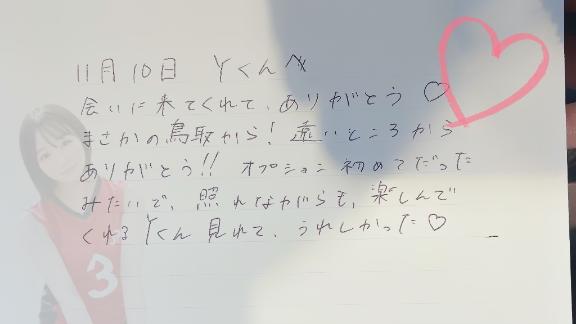 11月10日 Yくんへ
会いに来てくれて、ありがとう♡
まさかの鳥取から!遠いところから
ありがとう!! オプション初めてだった
みたいで、照れながらも、楽しんで
くれるYくん見れて、うれしかった♡
3